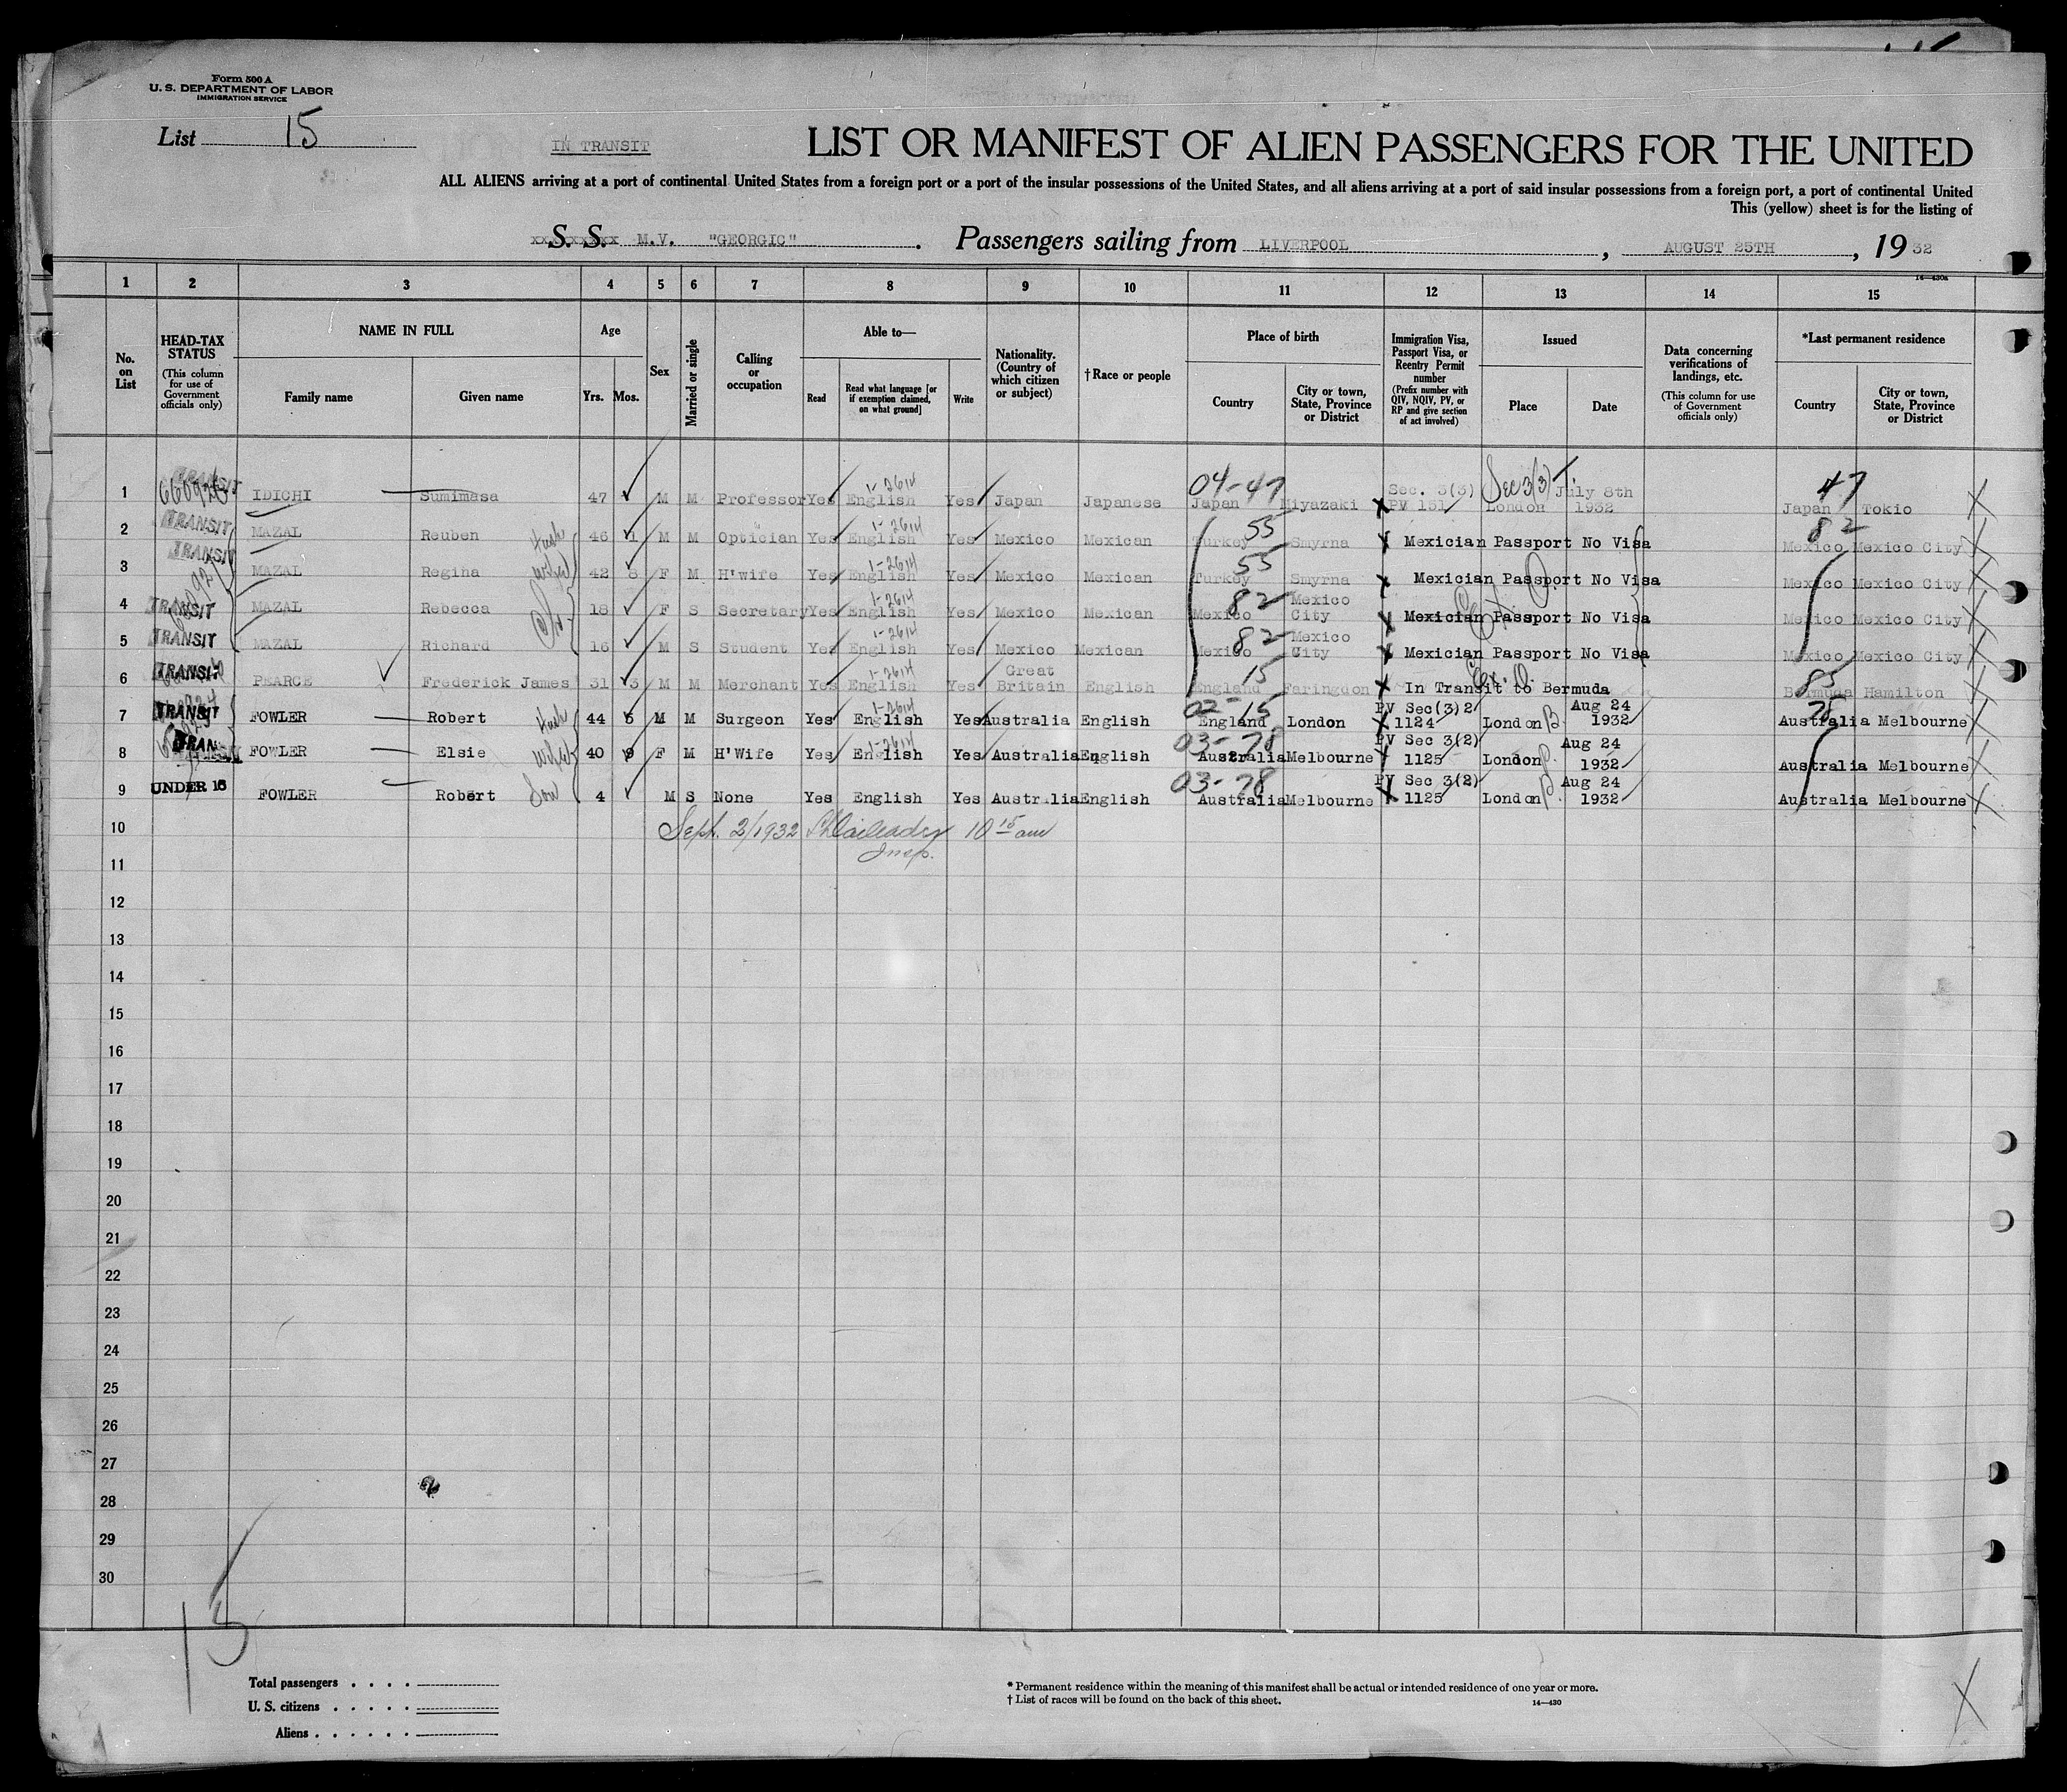 Form 500 A
U. S. DEPARTMENT OF LABOR
IMMIGRATION SERVICE
List 15
IN TRANSIT
LIST OR MANIFEST OF ALIEN PASSENGERS FOR THE UNITED
ALL ALIENS arriving at a port of continental United States from a foreign port or a port of the insular possessions of the United States, and all aliens arriving at a port of said insular possessions from a foreign port, a port of continental United
This (yellow) sheet is for the listing of
S. S. M.V. "GEORGIC" . Passengers sailing from LIVERPOOL , AUGUST 25TH , 19 32
14—430a
1 2 3 4 5 6 7 8 9 10 11 12 13 14 15
No. on List
HEAD-TAX STATUS (This column for use of Government officials only)
NAME IN FULL
Family name Given name
Age
Yrs. Mos.
Sex
Married or single
Calling or occupation
Able to—
Read Read what language [or if exemption claimed, on what ground] Write
Nationality. (Country of which citizen or subject)
†Race or people
Place of birth
Country City or town, State, Province or District
Immigration Visa, Passport Visa, or Reentry Permit number (Prefix number with QIV, NQIV, PV, or RP and give section of act involved)
Issued
Place Date
Data concerning verifications of landings, etc. (This column for use of Government officials only)
*Last permanent residence
Country City or town, State, Province or District
1 TRANSIT IDICHI Sumimasa 47 M M Professor Yes English 1-2614 Yes Japan Japanese 04-47 Japan Miyazaki Sec. 3(3) PV 151 Sec 3(3) London July 8th 1932 47 Japan Tokio
2 TRANSIT MAZAL Reuben Husb 46 1 M M Optician Yes English 1-2614 Yes Mexico Mexican 55 Turkey Smyrna Mexician Passport No Visa 82 Mexico Mexico City
3 TRANSIT MAZAL Regina Wife 42 8 F M H'wife Yes English 1-2614 Yes Mexico Mexican 55 Turkey Smyrna Mexician Passport No Visa Mexico Mexico City
4 TRANSIT MAZAL Rebecca 18 F S Secretary Yes English 1-2614 Yes Mexico Mexican 82 Mexico Mexico City Mexician Passport No Visa Mexico Mexico City
5 TRANSIT MAZAL Richard 16 M S Student Yes English 1-2614 Yes Mexico Mexican 82 Mexico Mexico City Mexician Passport No Visa Mexico Mexico City
6 TRANSIT PEARCE Frederick James 31 3 M M Merchant Yes English 1-2614 Yes Great Britain English 15 England Faringdon In Transit to Bermuda 85 Bermuda Hamilton
7 TRANSIT FOWLER Robert Husb 44 5 M M Surgeon Yes English 1-2614 Yes Australia English 02-15 England London PV Sec(3)2 1124 London Aug 24 1932 78 Australia Melbourne
8 TRANSIT FOWLER Elsie Wife 40 9 F M H'Wife Yes English 1-2614 Yes Australia English 03-78 Australia Melbourne PV Sec 3(2) 1125 London Aug 24 1932 Australia Melbourne
9 UNDER 16 FOWLER Robert Son 4 M S None Yes English Yes Australia English 03-78 Australia Melbourne PV Sec 3(2) 1125 London Aug 24 1932 Australia Melbourne
10 Sept. 2/1932 10 15 am
11 Insp.
12
13
14
15
16
17
18
19
20
21
22
23
24
25
26
27
28
29
30
15
Total passengers . . . .
U. S. citizens . . . . .
Aliens . . . . . .
* Permanent residence within the meaning of this manifest shall be actual or intended residence of one year or more.
† List of races will be found on the back of this sheet.
14—430